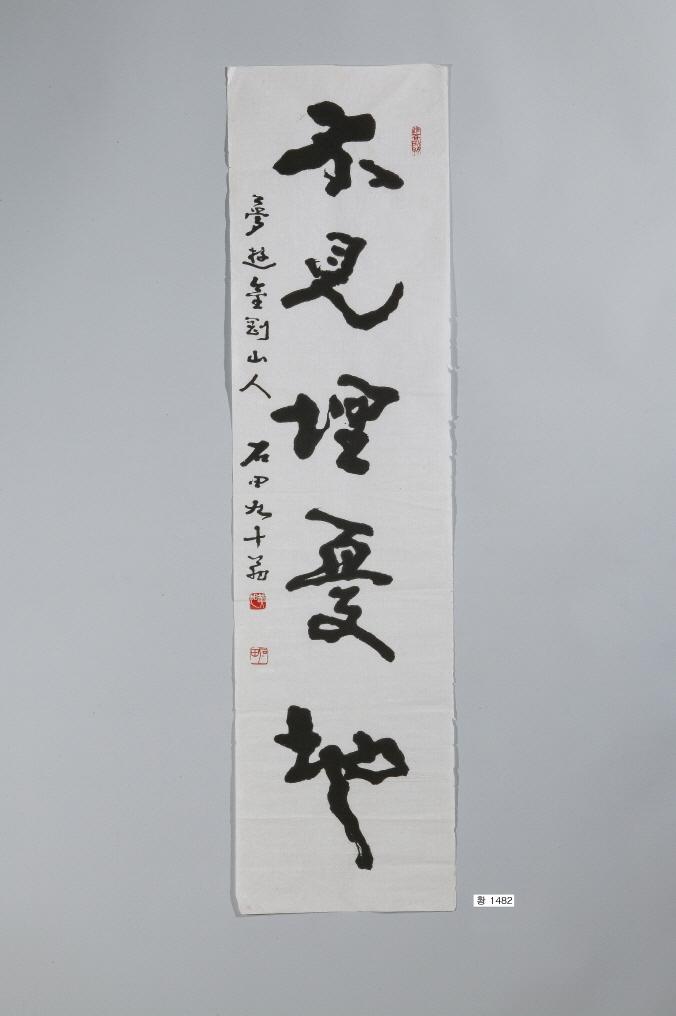 不見埋憂地
夢遊金剛山人 石田九十翁
황 1482